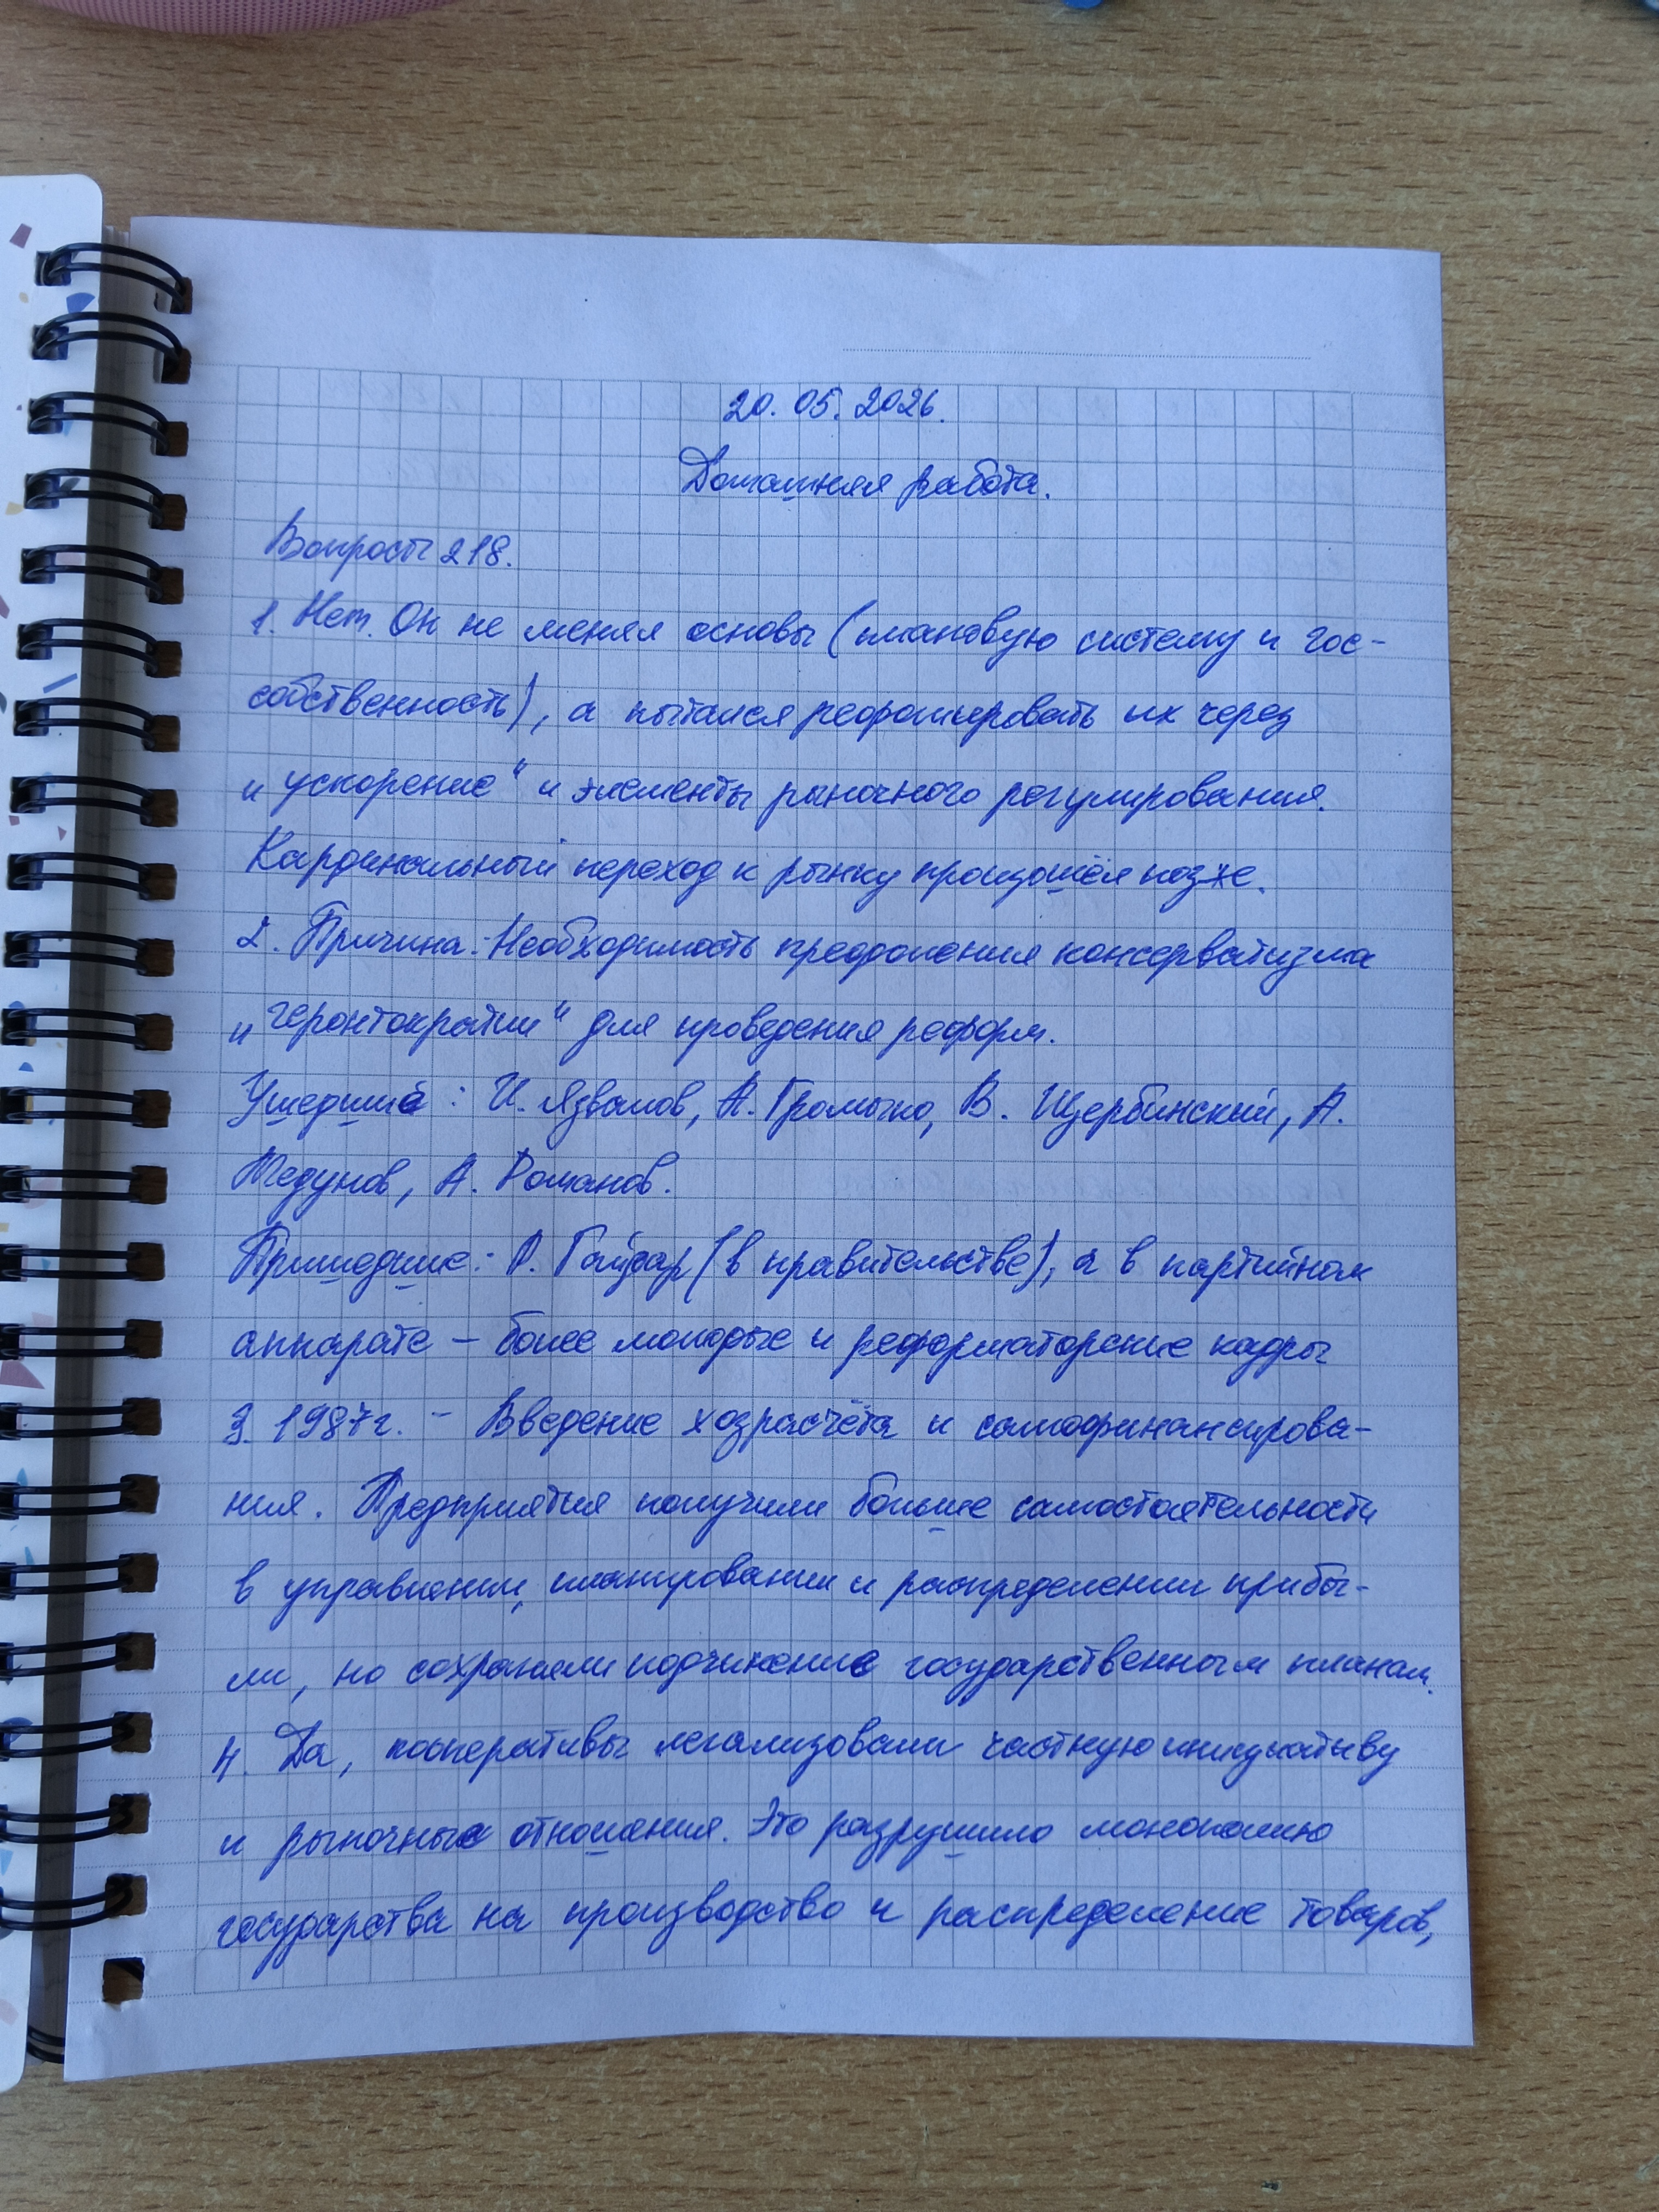 20. 05. 2026.
Домашняя работа.
Вопросы 218.
1. Нет. Он не менял основы (плановую систему и гос-
собственность), а пытался реформировать их через
„ускорение“ и элементы рыночного регулирования.
Кардинальный переход к рынку произошёл позже.
2. Причина: Необходимость преодоления консерватизма
„геронтократии“ для проведения реформ.
Ушедшие: И. Язванов, А. Громыко, В. Щербинский, А.
Медунов, А. Романов.
Пришедшие: А. Гайдар (в правительстве), а в партийном
аппарате – более молодые и реформаторские кадры
3. 1987г. – Введение хозрасчёта и самофинансирова-
ния. Предприятия получили больше самостоятельности
в управлении, планировании и распределении прибы-
ли, но сохраняли подчинение государственным планам.
4. Да, кооперативы легализовали частную инициативу
и рыночные отношения. Это разрушило монополию
государства на производство и распределение товаров,